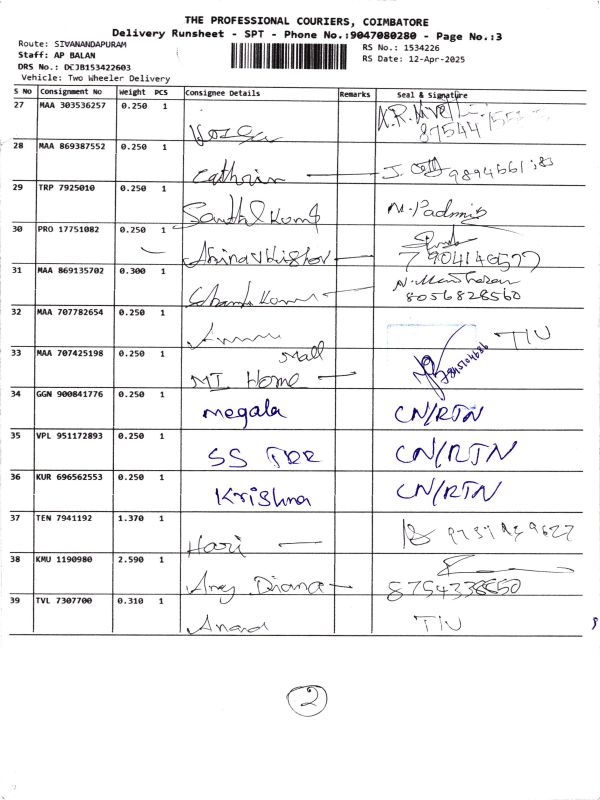 THE PROFESSIONAL COURIERS, COIMBATORE
Delivery Runsheet - SPT - Phone No.:9047080280 - Page No.:3
Route: SIVANANDAPURAM
RS No.: 1534226
Staff: AP BALAN
RS Date: 12-Apr-2025
DRS No.: DCJB153422603
Vehicle: Two Wheeler Delivery
S No Consignment No Weight PCS Consignee Details Remarks Seal & Signature
27 MAA 303536257 0.250 1
28 MAA 869387552 0.250 1
Cathrin
29 TRP 7925010 0.250 1
N. Padmis
30 PRO 17751082 0.250 1
7904140577
31 MAA 869135702 0.300 1
8056828560
32 MAA 707782654 0.250 1
TIU
33 MAA 707425198 0.250 1
Mall
MI Home
34 GGN 900841776 0.250 1
megala CN/RTN
35 VPL 951172893 0.250 1
SS CN/RTN
36 KUR 696562553 0.250 1
Krishna CN/RTN
37 TEN 7941192 1.370 1
Hari
38 KMU 1190980 2.590 1
Diana 8754338550
39 TVL 7307700 0.310 1
Anand TIU
2